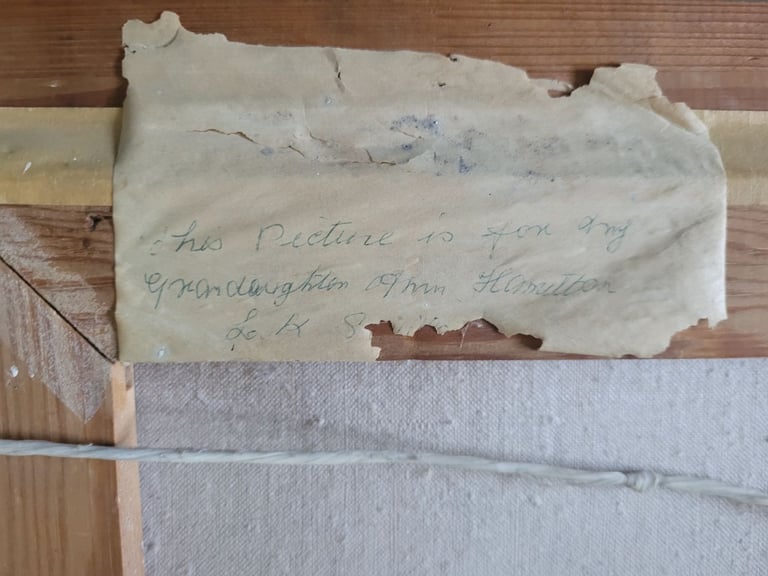 This Picture is for my
Grandaughter Ann Hamilton
L K